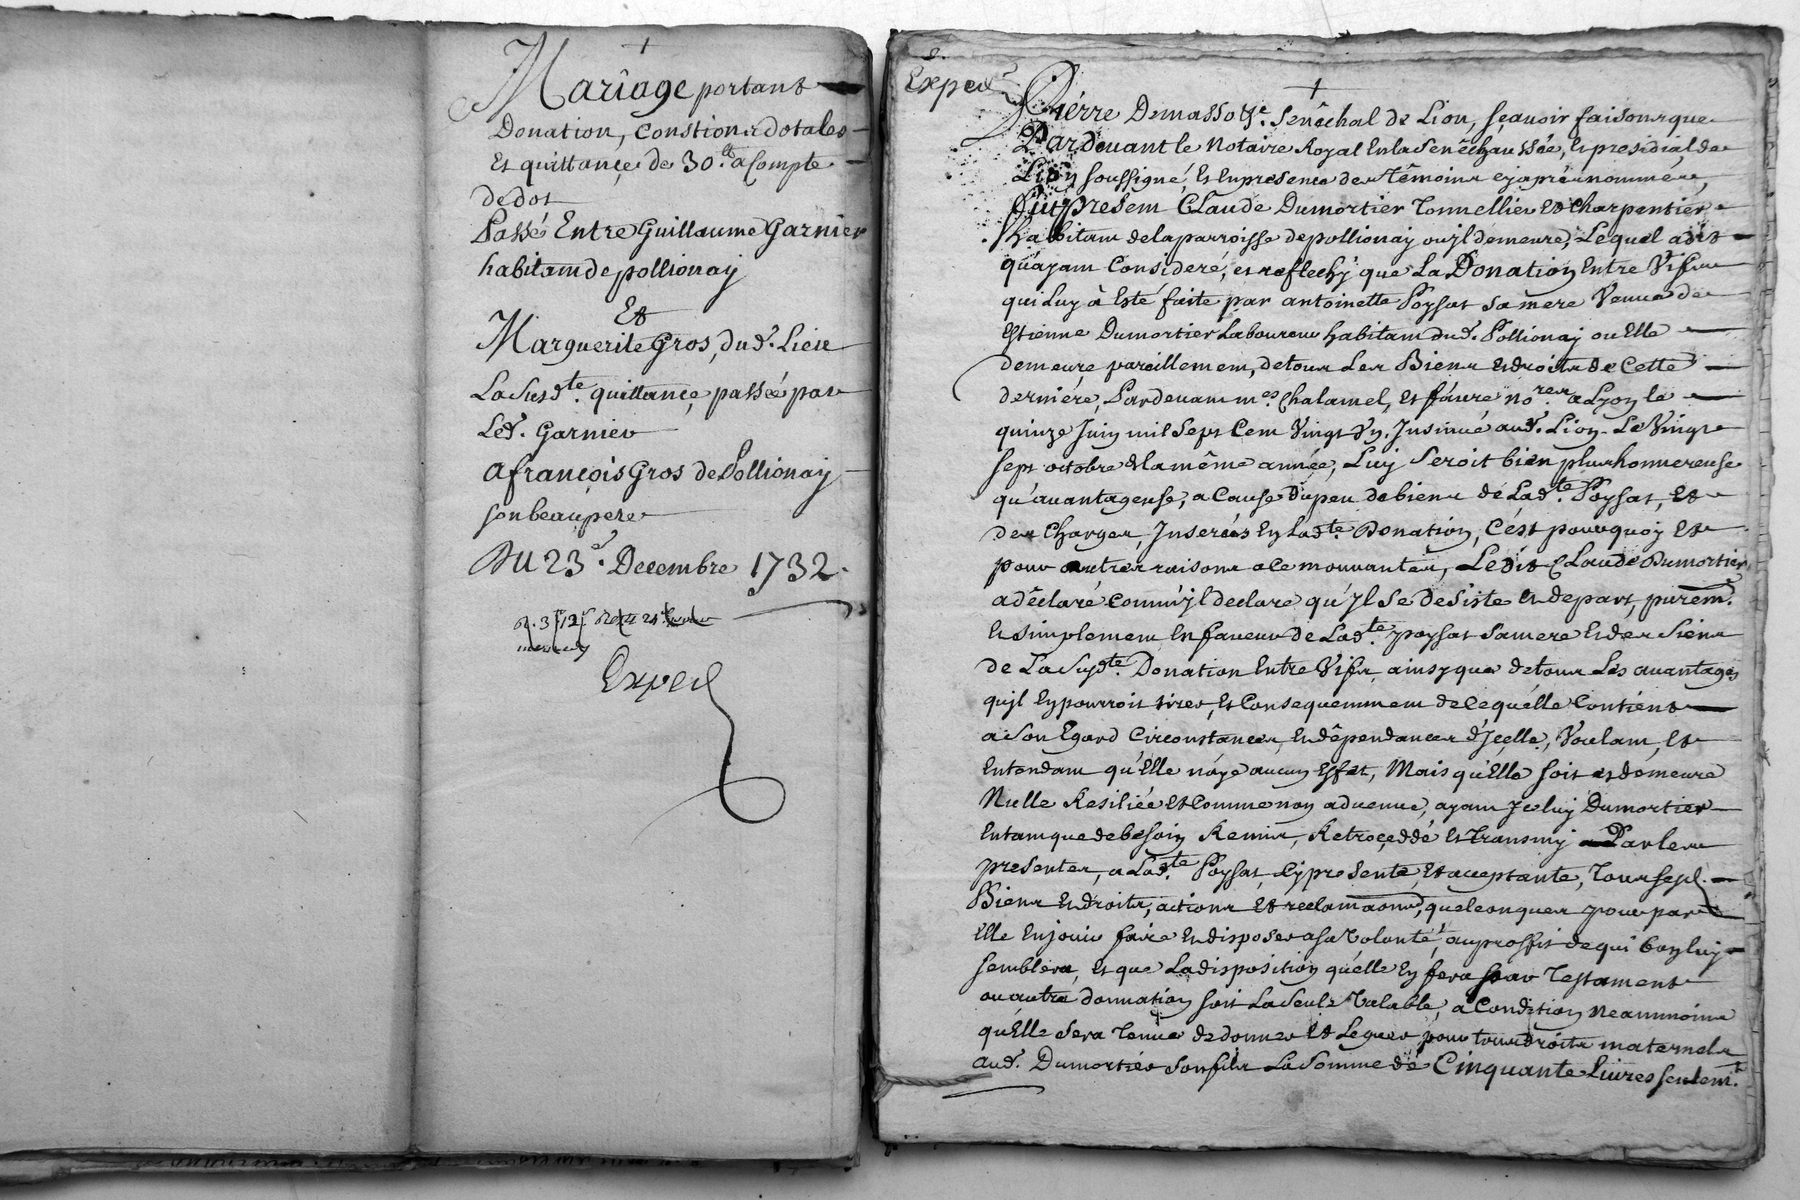 +
Mariage portant
Donation, Constion.s dotales
Et quittançe de 30.lt a Compte
de dot
Passé Entre Guillaume Garnier
habitant de pollionaÿ
Et
Marguerite Gros, dud.t Lieu
La Susd.te quittançe passéé par
Led.t Garnier
a françois Gros de Pollionaÿ
son beaupere
Du 23.e Decembre 1732.
Exped
Exped
+
Piérre Demasso &c. Senêchal de Lion, sçauoir faisons que
Pardeuant le Notaire Royal En la Senêchausséé, et presidial de
Lion soussigné, Et En presence des têmoins cy aprés nommés,
fut present Claude Dumortier Tonnellier et charpentier
habitant de la parroisse de pollionaÿ ou jl demeure, Lequel a dit
qu'ayant Consideré, et reflechÿ que La Donation Entre Vifs
qui Luy à Esté faite par antoinette Poyßat sa mere Veuue de
Estienne Dumortier Laboureur habitant dud.t Pollionaÿ ou Elle
demeure pareillement, de tous Les Biens et droits de Cette
derniére, Pardeuant m.es Chalamel, et fáure no.res a Lyon le
quinze Juin mil Sept Cent Vingt Vn. Insinué aud.t Lion Le Vingt
sept octobre de la même année, Luy Seroit bien plus honnereuse
qu'auantageuse, a Cause du peu de biens de Lad.te Poyßat, et
des Charges Inserées En Lad.te Donation, C'est pourquoy Et
pour autres raisons a ce mouuantes, Ledit Claude Dumortier,
a dêclaré comm'jl declare qu'jl Se desiste et depart, purem.t
Et simplement En faueur de Lad.te poyßat sa mere Et des Siens
de La Susd.te Donation Entre Vifs, ainsy que de tous Les auantages
qu'jl En pourroit tirer, et Consequemment de ce qu'élle Contient
a son Egard Circonstances, Et dêpendances d'Jçelle, Voulant, Et
Entendant qu'Elle n'aye aucun Effet, Mais qu'Elle soit et demeure
Nulle Resiliée et Comme non aduenue, ayant Jceluy Dumortier
En tant que de besoin Remis, Retroçeddé et Transmis Par les
presentes, a Lad.te Poyßat, cy presente, Et acceptante, Tous sesd.
Biens Et droits, actions Et reclamaons, quelconques pour par
Elle En jouir faire Et disposer a sa Volonté, au proffit de qui bon luy
semblera, et que La disposition qu'élle En fera par Testament
ou autre donnation soit La Seule Valable, a Condition neanmoins
qu'Elle Sera Tenue de donner et Leguer pour tous droits maternels
aud.t Dumortiér son fils La Somme de Cinquante Liures seulem.t